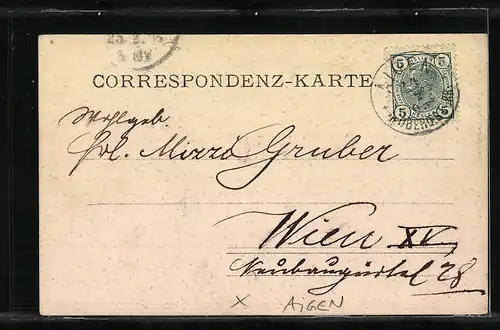 CORRESPONDENZ-KARTE
5 5
5 5
Wohlgeb.
Frl. Mizzi Gruber
Wien XV,
Neubaugürtel 28
x AiGEN